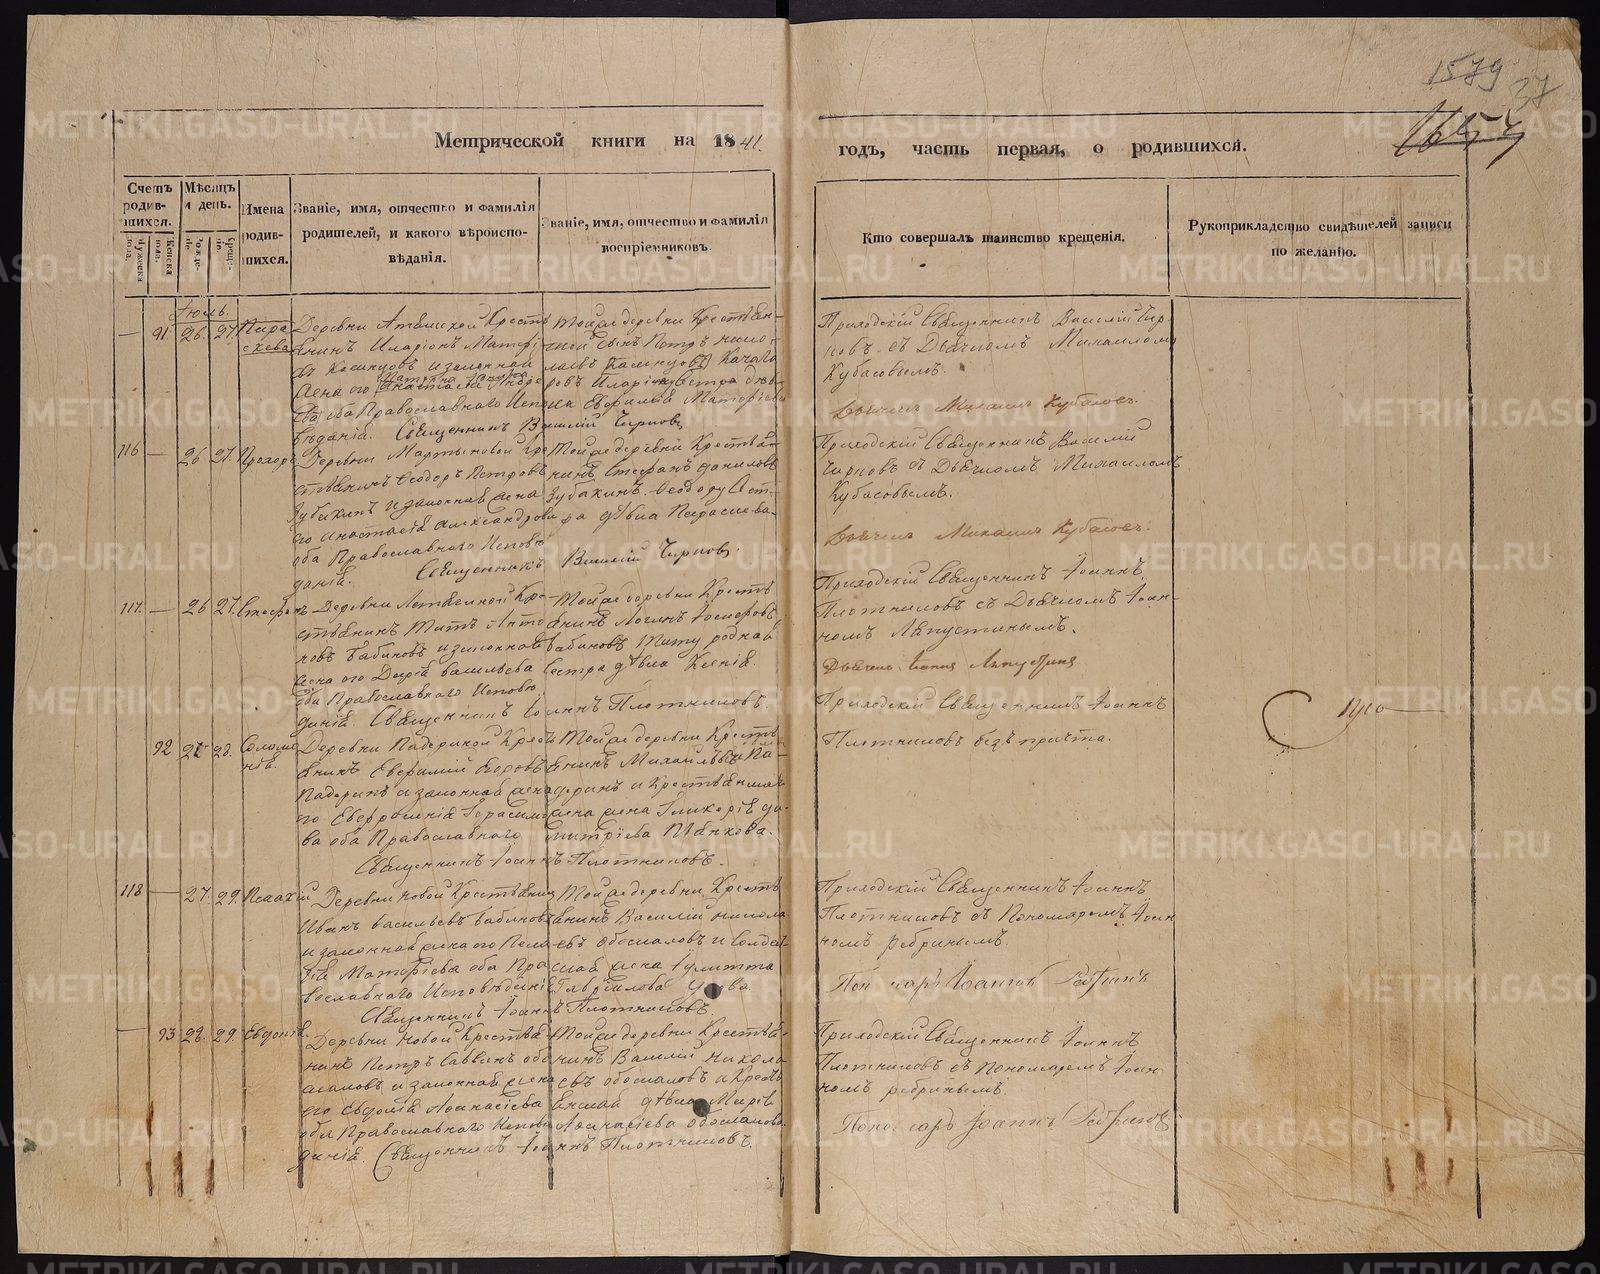 1579
37
1654
Метрической книги на 1841.
годъ, часть первая, о родившихся.
Счетъ родив-шихся.
Мѣсяцъ и день.
Имена родив-шихся.
Званіе, имя, отчество и фамилія родителей, и какого вѣроиспо-вѣданія.
Званіе, имя, отчество и фамилія воспріемниковъ.
Кто совершалъ таинство крещенія.
Рукоприкладство свидѣтелей записи по желанію.
Іюль.
91 26. 27. Пара-
скева
Деревни
Крестья-
нинъ Иларіонъ
и законная
жена его
оба Православнаго Испо-
вѣданія. Священникъ Василій Чирковъ
Той же деревни Крестьян-
Приходскій Священникъ Василій Чир-
ковъ съ Дьячкомъ Михаиломъ
Кубасовымъ.
Дьячекъ Михаилъ Кубасовъ.
116 — 26. 27. Прохоръ
Деревни Мартыновой Кре-
стьянинъ Ѳеодоръ Петровъ
Зубакинъ и законная жена
его Анастасія Александрова
оба Православнаго Исповѣ-
данія. Священникъ Василій Чирковъ.
Той же деревни Крестья-
нинъ Стефанъ Даниловъ
Зубакинъ. Ѳеодору Сест-
ра дѣвка Параскева.
Приходскій Священникъ Василій
Чирковъ съ Дьячкомъ Михаиломъ
Кубасовымъ.
Дьячекъ Михаилъ Кубасовъ.
117. — 26 27. Стефанъ
Деревни
Кре-
стьянинъ Титъ Анто-
новъ Бабиновъ и законная
жена его Дарія Васильева
оба Православнаго Исповѣ-
данія. Священникъ Іоаннъ Плотниковъ.
Той же деревни Кресть-
янинъ Логинъ
Бабиновъ Титу родная
Сестра дѣвка Ксенія.
Приходскій Священникъ Іоаннъ
Плотниковъ съ Дьячкомъ Іоан-
номъ Ляпустинымъ.
Дьячекъ Іоаннъ Ляпустинъ
92 27 28. Соломо-
нія.
Деревни Падериной Кресть-
янинъ Евѳимій Егоровъ
Падеринъ и законная жена
его Евфросинія Герасимо-
ва оба Православнаго.
Священникъ Іоаннъ Плотниковъ.
Той же деревни Кресть-
янинъ Михаилъ
Па-
деринъ и Крестьянская
жена Гликерія Ди-
митріева Пьянкова.
Приходскій Священникъ Іоаннъ
Плотниковъ безъ причта.
118 — 27. 29. Исаакій
Деревни Новой Крестьянинъ
Иванъ Васильевъ Бабиновъ
и законная жена его Пела-
гія Матѳіева оба Пра-
вославнаго Исповѣданія
Священникъ Іоаннъ Плотниковъ
Той же деревни Кресть-
янинъ Василій Никола-
евъ Обоскаловъ и Солдат-
ская жена Іулитта
Гавріилова
Приходскій Священникъ Іоаннъ
Плотниковъ съ Пономаремъ Іоан-
номъ Ребринымъ.
Пономарь Іоаннъ Ребринъ
93 28. 29. Евдокія.
Деревни Новой Крестья-
нинъ Петръ Саввинъ Обо-
скаловъ и законная жена
его Евдокія Аѳанасіева
оба Православнаго Исповѣ-
данія. Священникъ Іоаннъ Плотниковъ.
Той же деревни Крестья-
нинъ Василій Никола-
евъ Обоскаловъ и Кресть-
янская дѣвка Марія
Аѳанасіева Обоскалова.
Приходскій Священникъ Іоаннъ
Плотниковъ съ Пономаремъ Іоан-
номъ Ребринымъ.
Пономарь Іоаннъ Ребринъ
METRIKI.GASO-URAL.RU